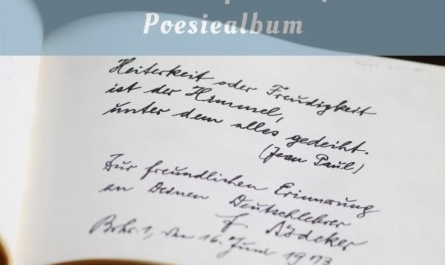 Poesiealbum
Heiterkeit oder Freudigkeit
ist der Himmel,
unter dem alles gedeiht.
(Jean Paul)
Zur freundlichen Erinnerung
an Deinen Deutschlehrer
F.
den 16. Juni 1973